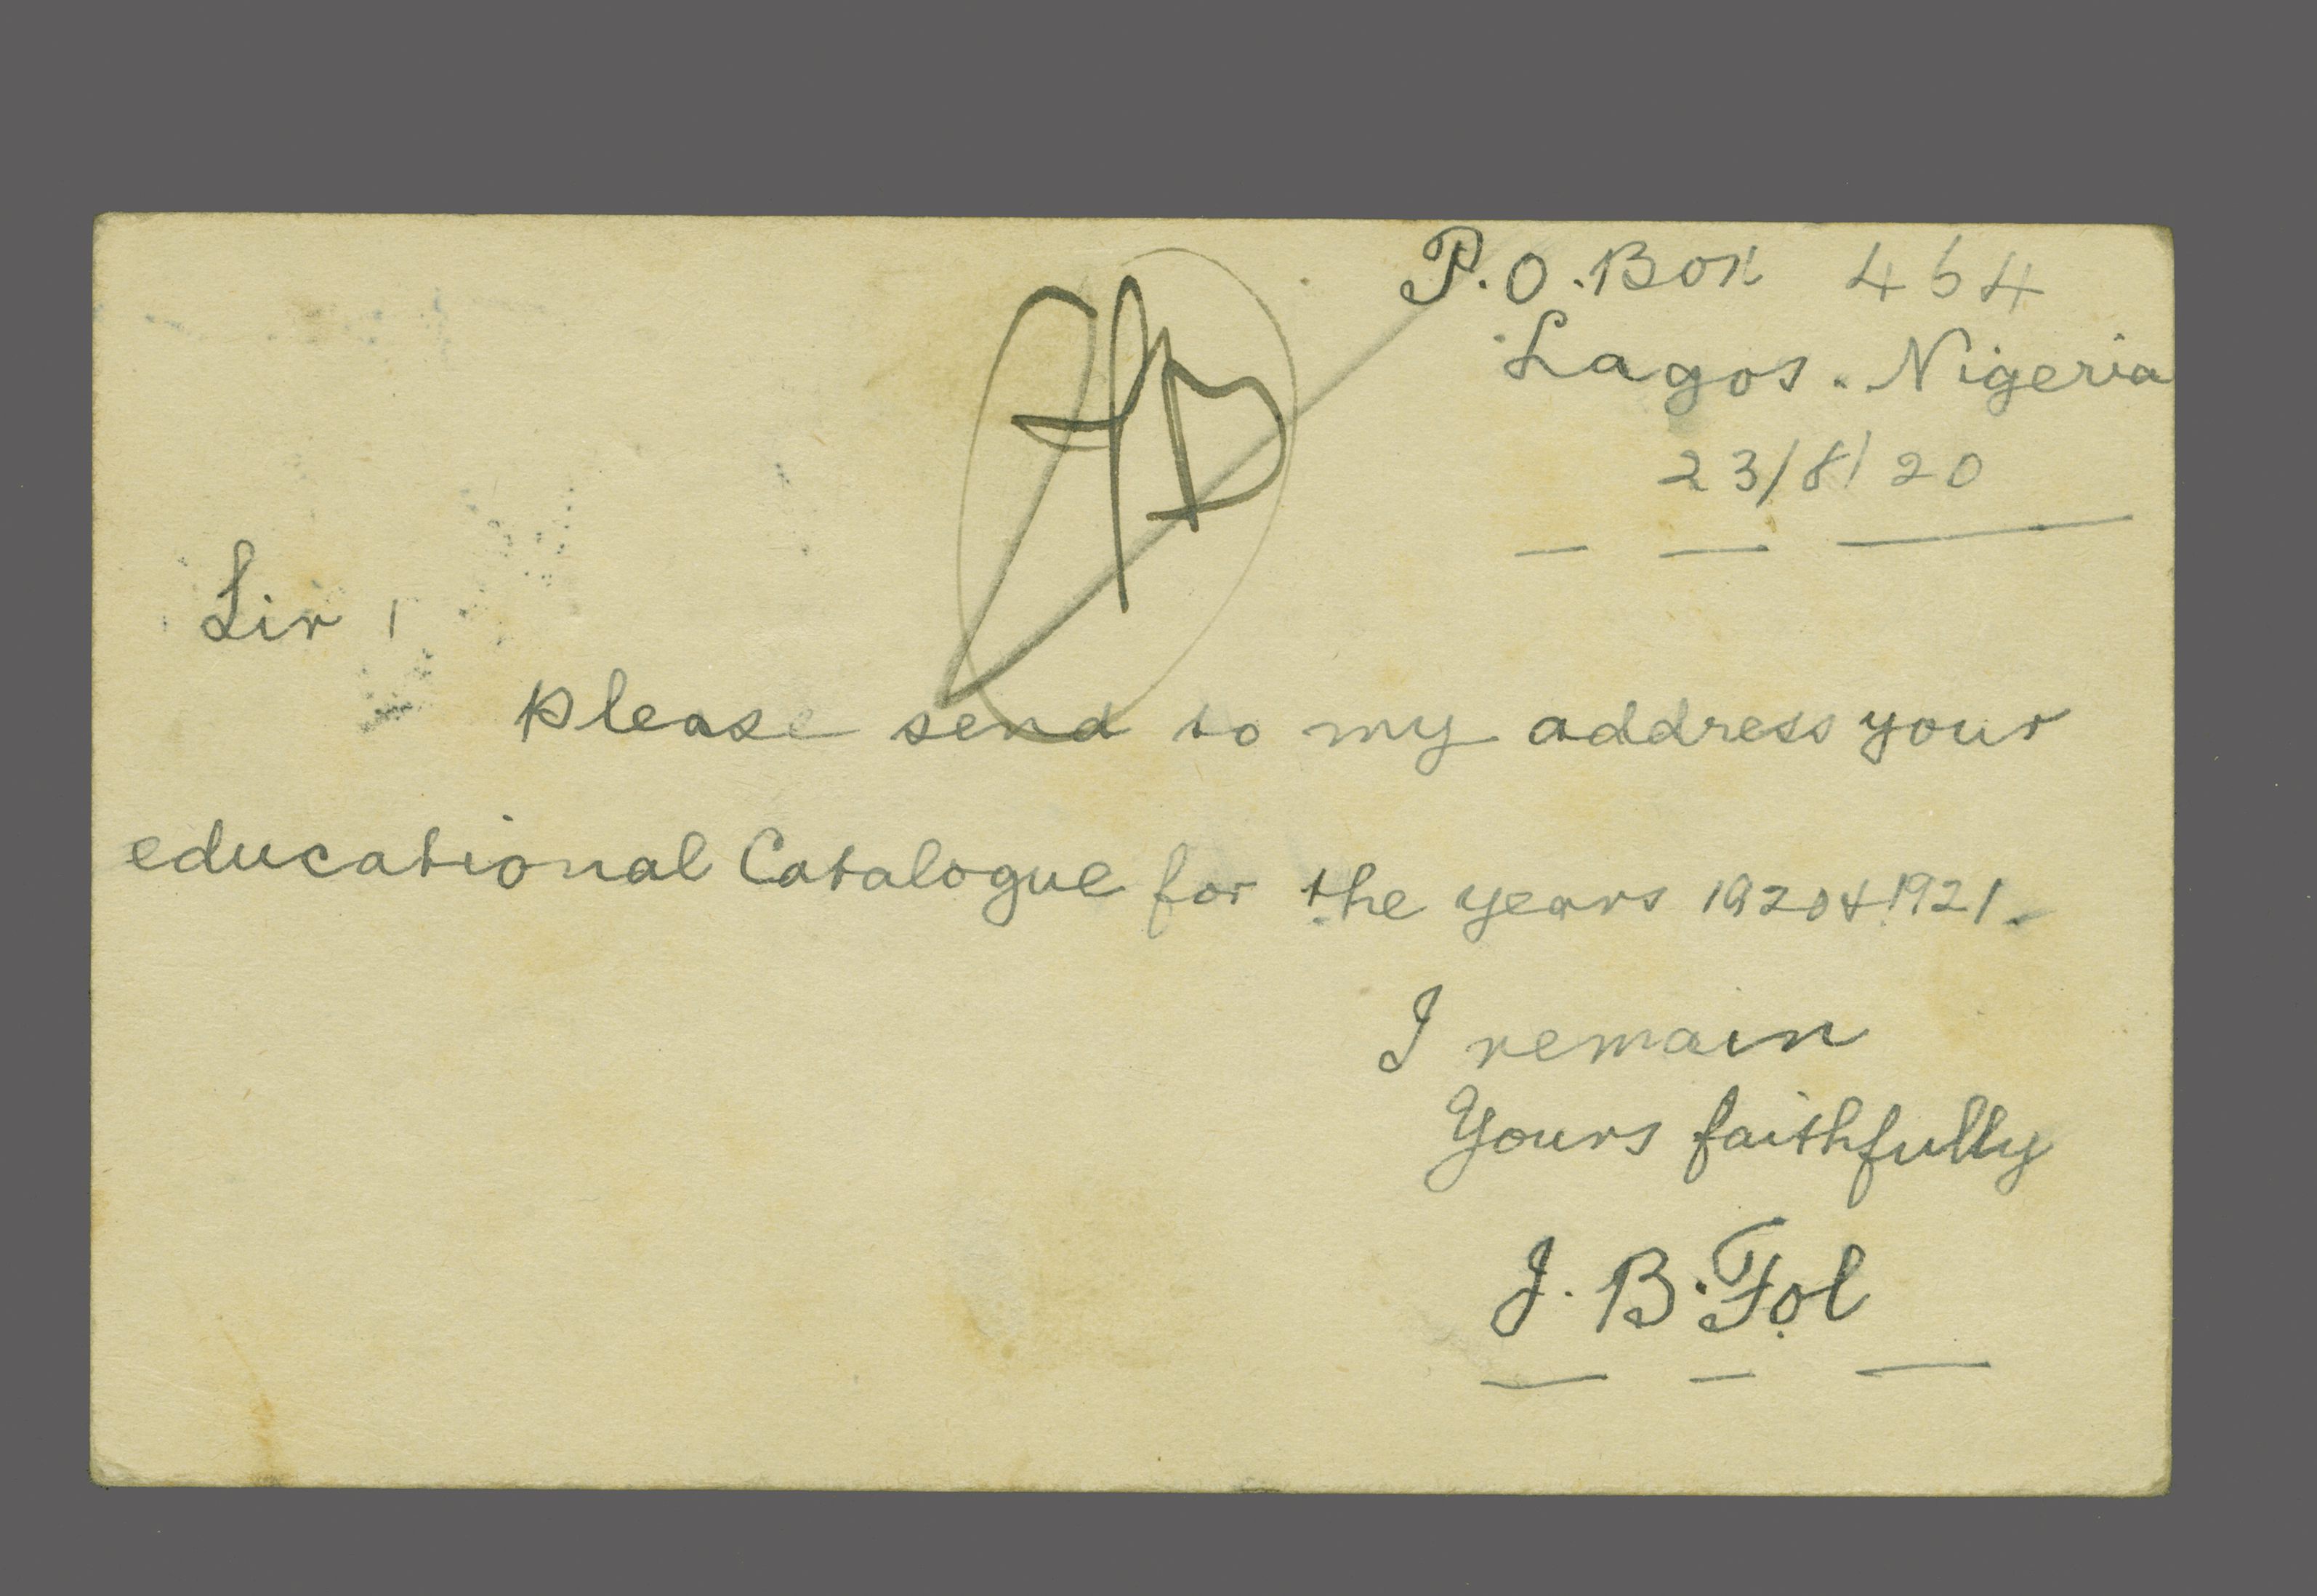 P.O. Box 464
Lagos. Nigeria
23/8/20
Sir,
Please send to my address your
educational Catalogue for the years 1920 & 1921.
I remain
Yours faithfully
J. B. Fọl